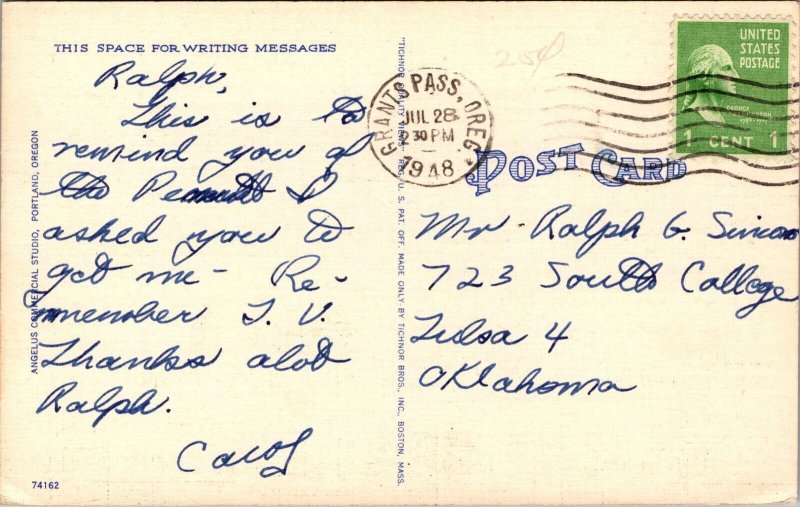 THIS SPACE FOR WRITING MESSAGES
Ralph,
This is to
remind you of
the I
asked you to
get me - Re-
member T. V.
Thanks alot
Ralph.
Carol
74162
ANGELUS COMMERCIAL STUDIO, PORTLAND, OREGON
"TICHNOR QUALITY VIEWS," REG. U. S. PAT. OFF. MADE ONLY BY TICHNOR BROS., INC., BOSTON, MASS.
20¢
GRANTS PASS, OREG.
JUL 28
2 30 PM
1948
UNITED
STATES
POSTAGE
GEORGE
WASHINGTON
1 CENT 1
POST CARD
Mr Ralph G.
723 South College
Tulsa 4
Oklahoma